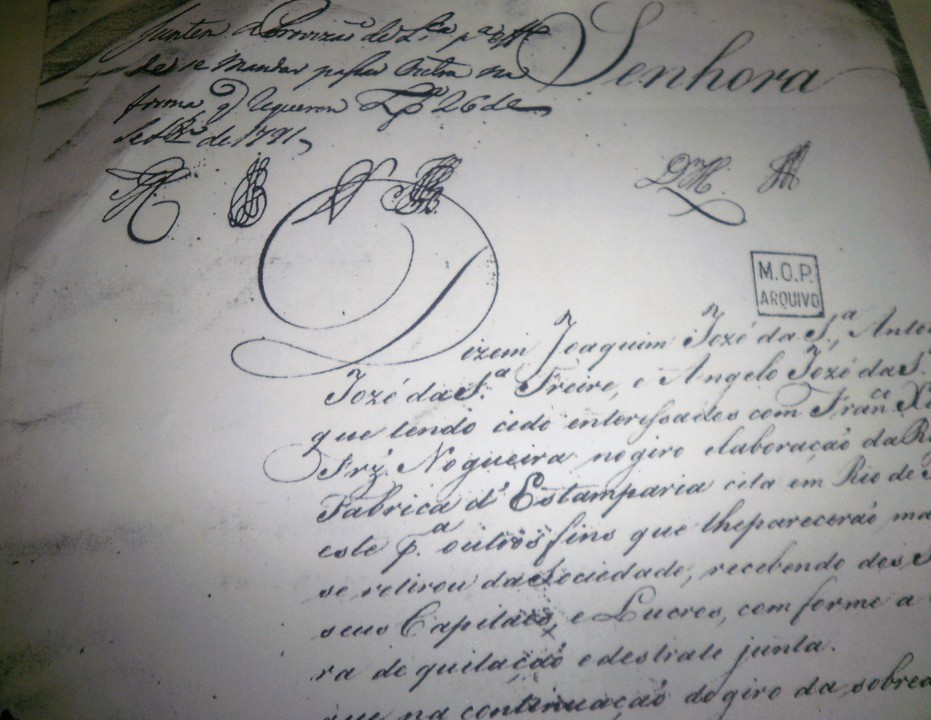 Juntem a Provizaõ de L.ça p.a effº
de se Mandar passar Outra na
forma q̃ requerem Lx.a 26 de
Setbr.º de 1791
Senhora
M.O.P.
ARQUIVO
Dizem Joaquim Jozé da S.a, Anto
Jozé da S.a Freire, e Angelo Jozé da S.
que tendo cido interessados com Fran.co X
Frz̃ Nogueira no giro elaboraçaõ da R
Fabrica d'Estamparia cita em Rio de
este p.a outros fins que lhepareceraõ ma
se retirou da Sociedade, recebendo dos
seus Capitães, e Lucros, com forme a
ra de quitaçaõ edestrate junta.
que na continuaçaõ do giro da sobred